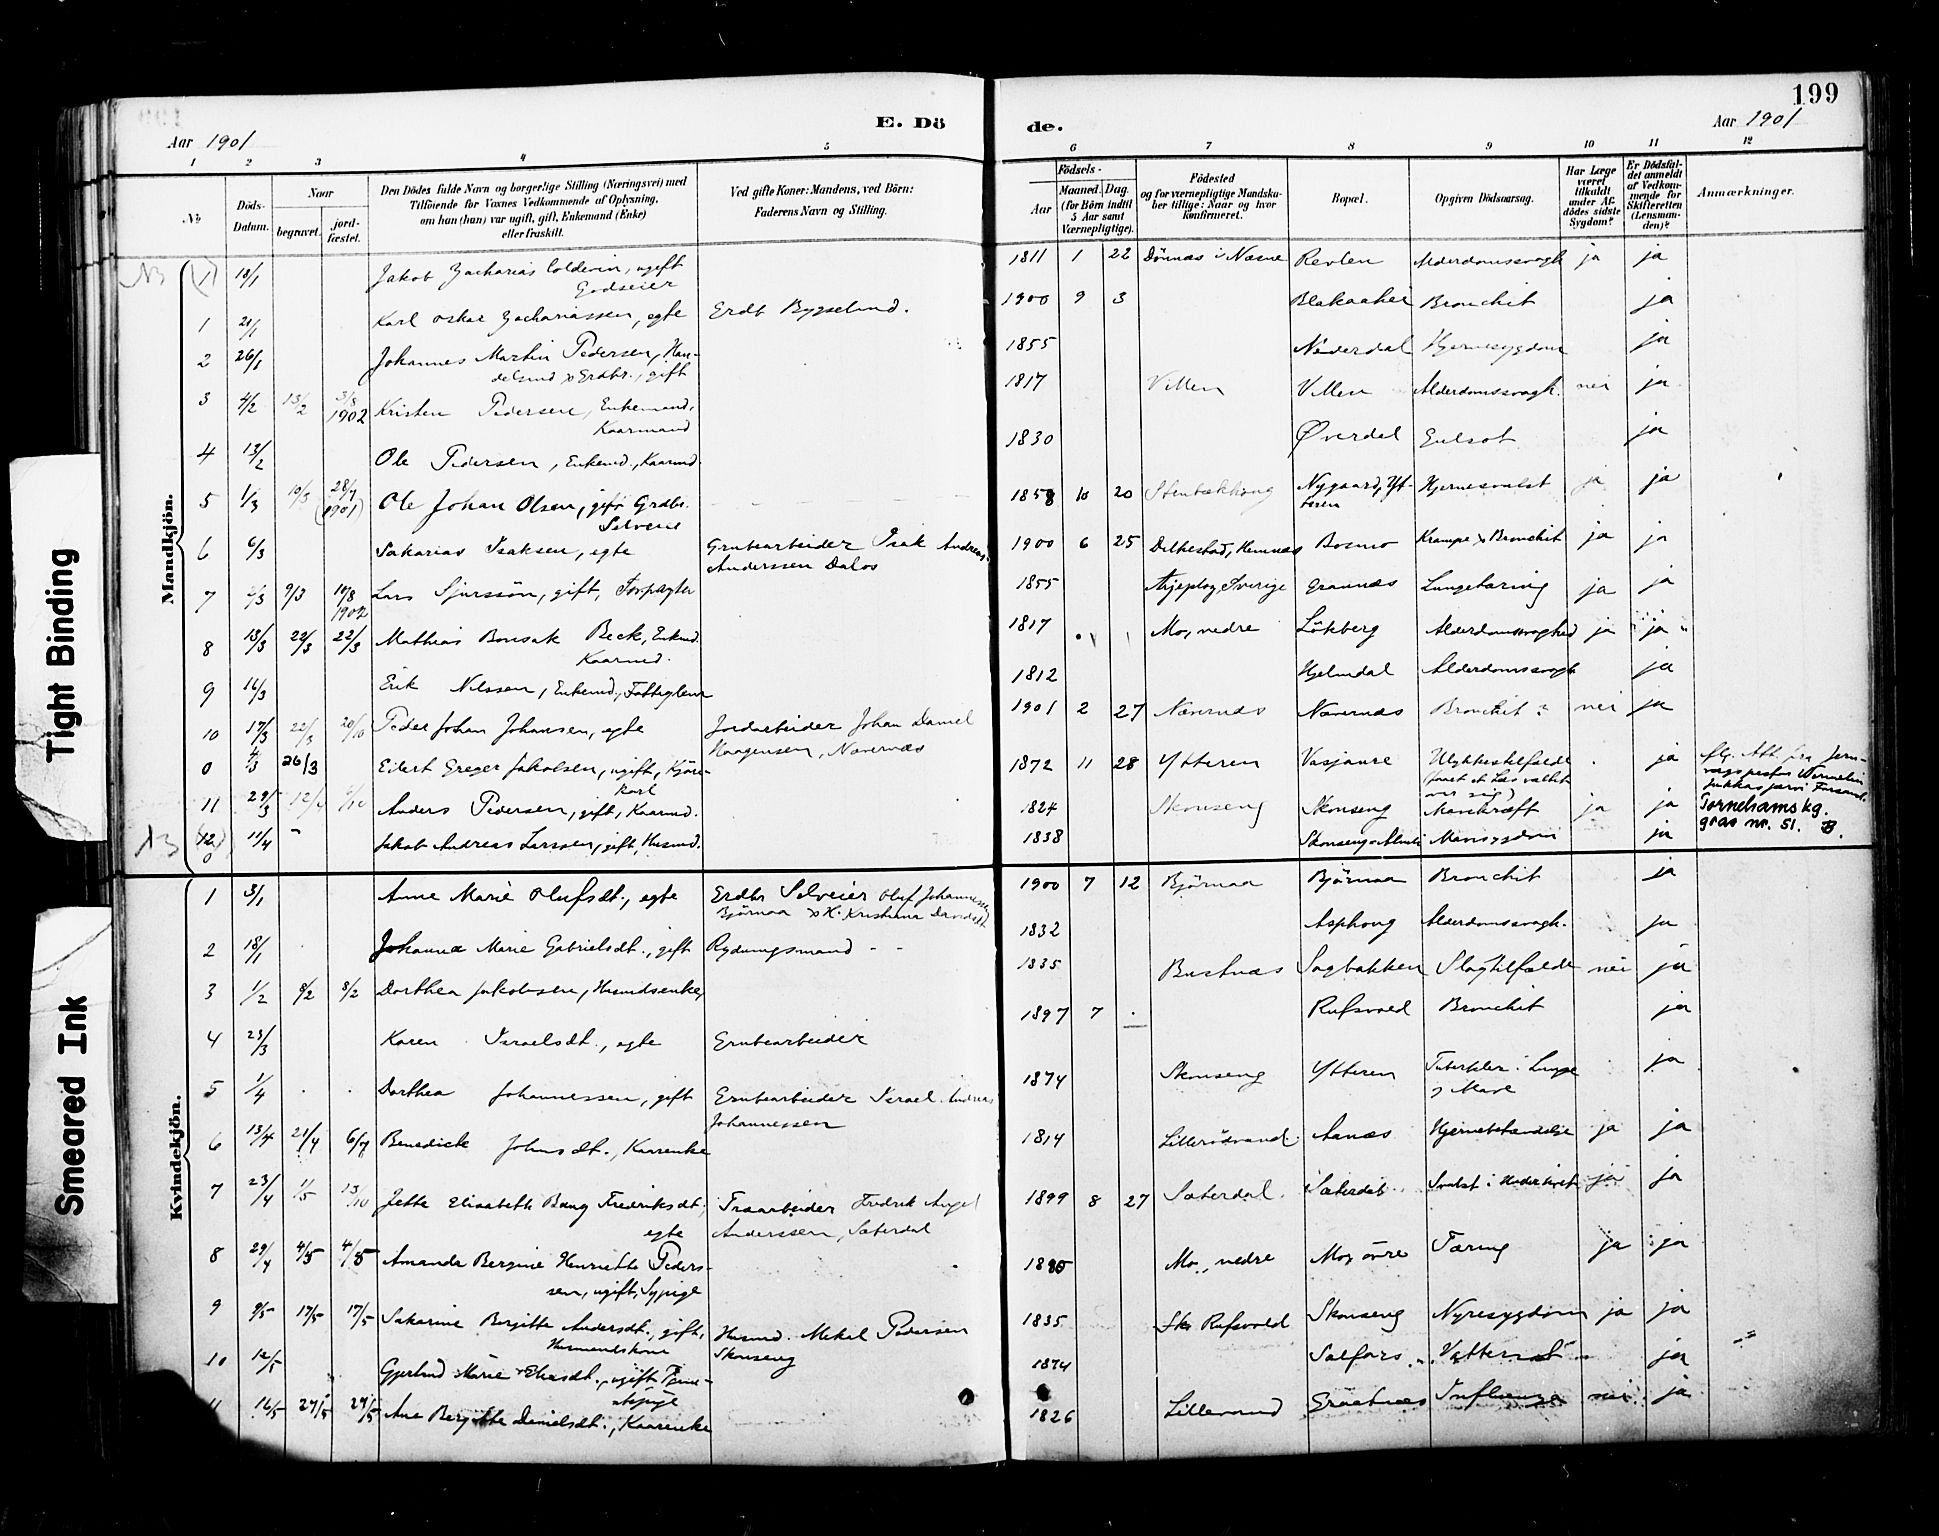 199
E. Dö
de.
Aar 1901
Aar 1901
1 2 3 4 5
6 7 8 9 10 11 12
No
Döds-Datum.
Naar
begravet.
jord-fæstet.
Den Dödes fulde Navn og borgerlige Stilling (Næringsvei) med
Tilföiende for Voxnes Vedkommende af Oplysning,
om han (hun) var ugift, gift, Enkemand (Enke)
eller fraskilt.
Ved gifte Koner: Mandens, ved Börn:
Faderens Navn og Stilling.
Födsels-
Aar
Maaned. Dag.
(for Börn indtil
5 Aar samt
Værnepligtige).
Födested
og for værnepligtige Mandska-
ber tillige: Naar og hvor
konfirmeret.
Bopæl.
Opgiven Dödsaarsag.
Har Læge
været
tilkaldt
under Af-
dödes sidste
Sygdom?
Er Dödsfal-
det anmeldt
af Vedkom-
mende for
Skifteretten
(Lensman-
den)?
Anmærkninger.
Tight Binding
Smeared Ink
Mandkjön.
1 18/1 Jakob Zacharias Coldevin, ugift
Godseier
1811 1 22 Dönnæs i Næsne Revlen Alderdomssvagh ja ja
1 21/1 Karl Oskar Zachariassen, egte
1900 9 3 Bronchit ja
2 26/1 Johannes Martin Pedersen, Han-
delsmd & Grdbr., gift
1855 Hjernesygdom ja
3 4/2 13/2 3/8 1902 Kristen Pedersen, Enkemand,
Kaarmand
1817 Villen Villen Alderdomssvagh. nei ja
4 13/2 Ole Pedersen, Enkemd., Kaarmd.
1830 Øverdal Gulsot ja
5 1/3 10/3 28/7 (1901) Ole Johan Olsen, gift Grdbr.
Selveier
1858 10 20 Stenbækhaug Nygaard, Yt-
teren Hjernesvulst ja ja
6 6/3 Sakarias Isaksen, egte Grubearbeider Isak Andreas
Anderssen Dalos
1900 6 25 Hemnæs Bosmo Krampe & Bronchit ja ja
7 9/3 10/8 1902 Lars Sjurssön, gift, Forpagter
1855 Arjeplog, Sverige Grannæs Lungetæring ja ja
8 13/3 22/3 22/3 Mathias Bonsak Beck, Enkmd.
Kaarmd.
1817 Mo, nedre Lökberg Alderdomssvaghed ja ja
9 16/3 Erik Nilssen, Enkemd., Fattiglem
1812 Hjelmdal Alderdomssvagh ja
10 17/3 22/3 20/10 Peder Johan Johansen, egte Jordarbeider Johan Daniel
Haagensen, Nævernæs
1901 2 27 Nævernæs Nævernæs Bronchit? nei ja
0 4/3 26/3 Eilert Greger Jakobsen, ugift, Kjöre-
karl
1872 11 28 Ytteren Vasjaure Ulykkestilfælde
(faaet et Læs væltet
over sig) ja
Tornehams kg.
grav nr. 51. B.
11 29/3 Anders Pedersen, gift, Kaarmd.
1824 Skonseng Skonseng Mavekræft ja ja
12 0 11/4 Jakob Andreas Larssen, gift, Husmd.
1838 Mavesygdom ja
Kvindekjön.
1 3/1 Anne Marie Olufsdt., egte Grdbr Selveier Oluf Johannessen
Björnaa & H. Kristiana Davidsdt
1900 7 12 Björnaa Björnaa Bronchit ja
2 18/1 Johanna Marie Gabrielsdt., gift Rydningsmand
1832 Asphaug Alderdomssvagh. ja
3 1/2 8/2 8/2 Dorthea Jakobsen, Husmdsenke
1835 Bustnæs Sagbakken Slagtilfælde nei ja
4 23/3 Karen Israelsdt., egte Grubearbeider
1897 7 Rufsvold Bronchit ja
5 1/4 Dorthea Johannessen, gift Grubearbeider Israel Andreas
Johannessen
1874 Skonseng Ytteren Tuberkler i Lunge
og Mave ja
6 13/4 21/4 6/7 Benedicte Johnsdt., Kaarenke
1814 Aanæs ja ja
7 23/4 1/5 13/10 Jette Elisabeth Bang Fredriksdt,
egte Fredrik Angel
Anderssen, Sæterdal
1899 8 27 Sæterdal Sæterdal ja ja
8 29/4 4/5 4/5 Amanda Bergine Henriette Peders-
sen, ugift, Sypige
Mo, nedre Mo, övre Tæring ja ja
9 9/5 17/5 17/5 Sakarine Bergitte Andersdt., gift,
Husmandskone Husmd. Mekal Pedersen
Skonseng
1835 Rufsvold Skonseng Nyresygdom ja ja
10 12/5 Gjertrud Marie Eliasdt., ugift Tjene-
stepige
1874 Salfors Vattersot ja
11 16/5 27/5 27/5 Ane Bergitte Danielsdt., Kaarenke
1826 Lillevand Influenza nei ja